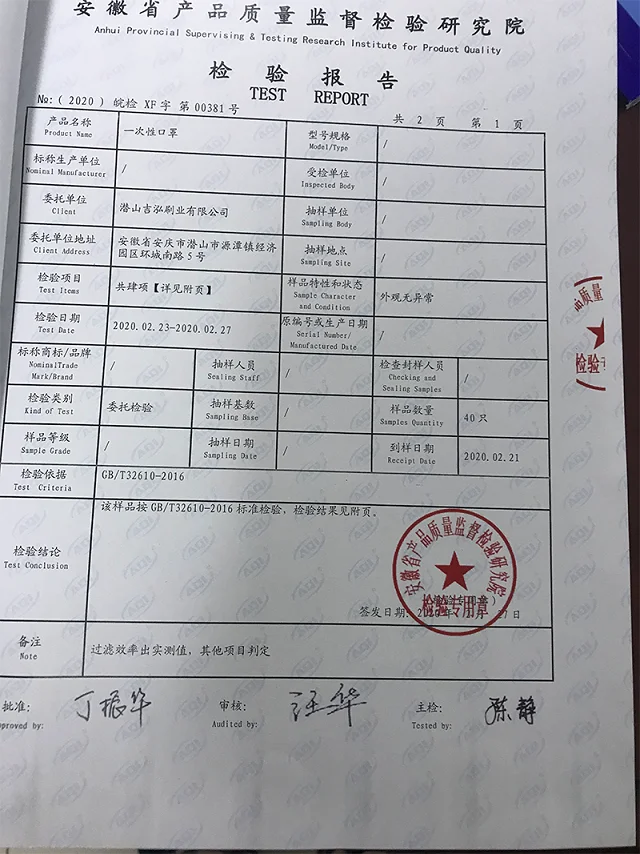 安徽省产品质量监督检验研究院
Anhui Provincial Supervising & Testing Research Institute for Product Quality
检验报告
TEST REPORT
№:(2020)皖检 XF字 第00381号
共 2 页 第 1 页
产品名称
Product Name
一次性口罩
型号规格
Model/Type
/
标称生产单位
Nominal Manufacturer
/
受检单位
Inspected Body
/
委托单位
Client
潜山吉泓刷业有限公司
抽样单位
Sampling Body
/
委托单位地址
Client Address
安徽省安庆市潜山市源潭镇经济
园区环城南路5号
抽样地点
Sampling Site
/
检验项目
Test Items
共肆项【详见附页】
样品特性和状态
Sample Character
and Condition
外观无异常
检验日期
Test Date
2020.02.23-2020.02.27
原编号或生产日期
Serial Number/
Manufactured Date
/
标称商标/品牌
NominalTrade
Mark/Brand
/
抽样人员
Sealing Staff
/
检查封样人员
Checking and
Sealing Samples
/
检验类别
Kind of Test
委托检验
抽样基数
Sampling Base
/
样品数量
Samples Quantity
40只
样品等级
Sample Grade
/
抽样日期
Sampling Date
/
到样日期
Receipt Date
2020.02.21
检验依据
Test Criteria
GB/T32610-2016
检验结论
Test Conclusion
该样品按GB/T32610-2016标准检验，检验结果见附页。
安徽省产品质量监督检验研究院
检验专用章
签发日期:
备注
Note
过滤效率出实测值，其他项目判定
批准:
pproved by:
丁振华
审核:
Audited by:
汪华
主检:
Tested by:
陈静
品质量
检验